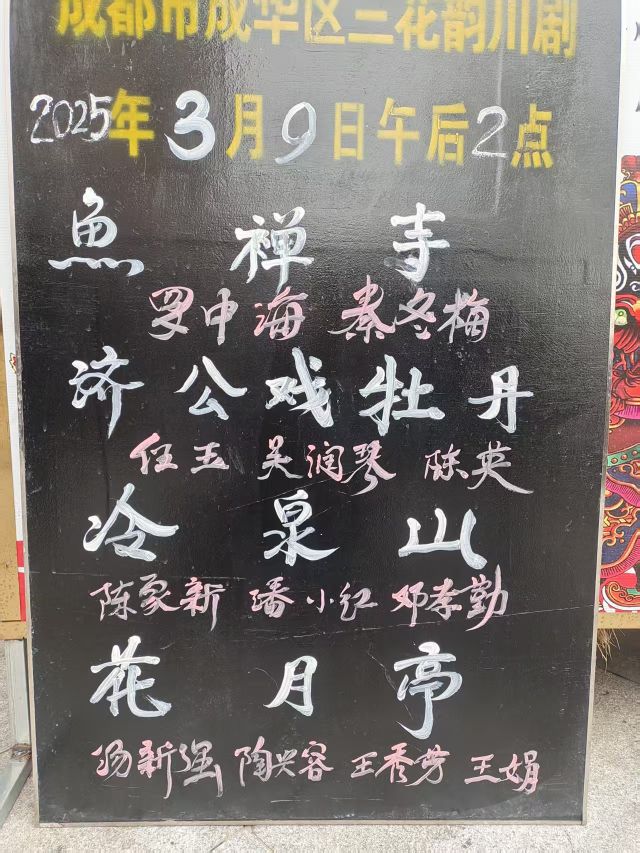 成都市成华区三花韵川剧
2025年3月9日午后2点
魚禅寺
罗申海 秦冬梅
济公戏牡丹
任玉 吴润琴 陈英
冷泉山
陈家新 潘小红 邓孝勤
花月亭
汤新强 陶兴容 王秀芳 王娟